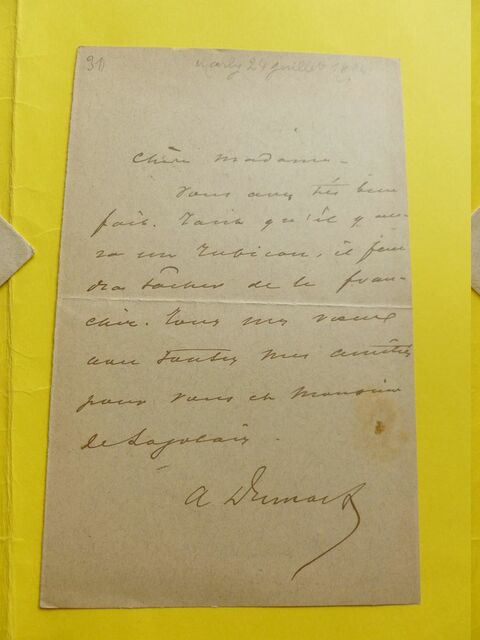 30
Marly 24 juillet
Chère Madame
Vous avez très bien
fait. Tant qu'il y au-
ra un Rubicon, il fau-
dra tâcher de le fran-
chir. Tous mes vœux
avec toutes mes amitiés
pour vous et Monsieur
de
A Dumas f